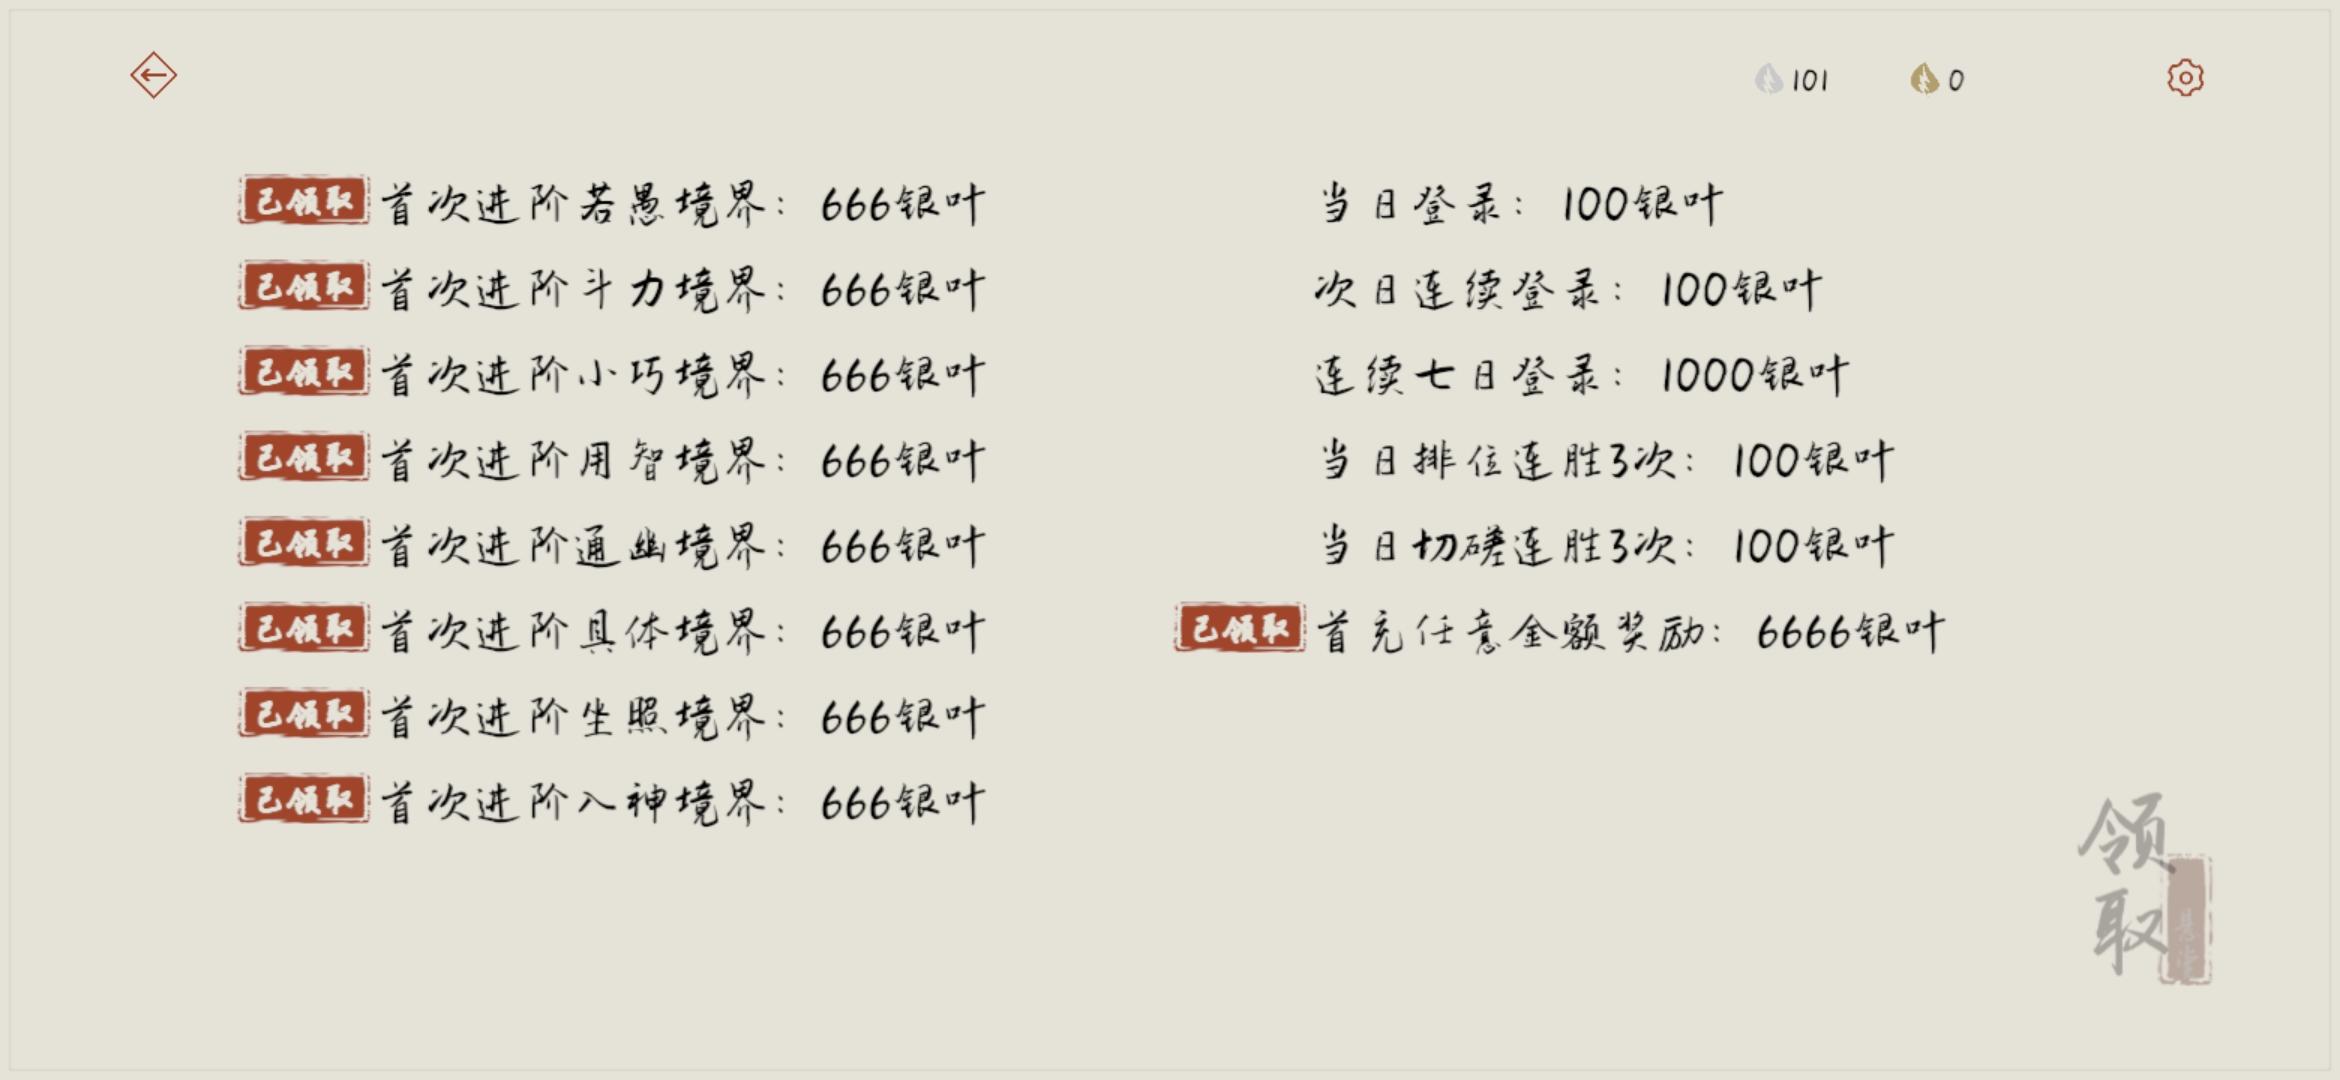 101
0
已领取 首次进阶若愚境界：666银叶
已领取 首次进阶斗力境界：666银叶
已领取 首次进阶小巧境界：666银叶
已领取 首次进阶用智境界：666银叶
已领取 首次进阶通幽境界：666银叶
已领取 首次进阶具体境界：666银叶
已领取 首次进阶坐照境界：666银叶
已领取 首次进阶入神境界：666银叶
当日登录：100银叶
次日连续登录：100银叶
连续七日登录：1000银叶
当日排位连胜3次：100银叶
当日切磋连胜3次：100银叶
已领取 首充任意金额奖励：6666银叶
领取